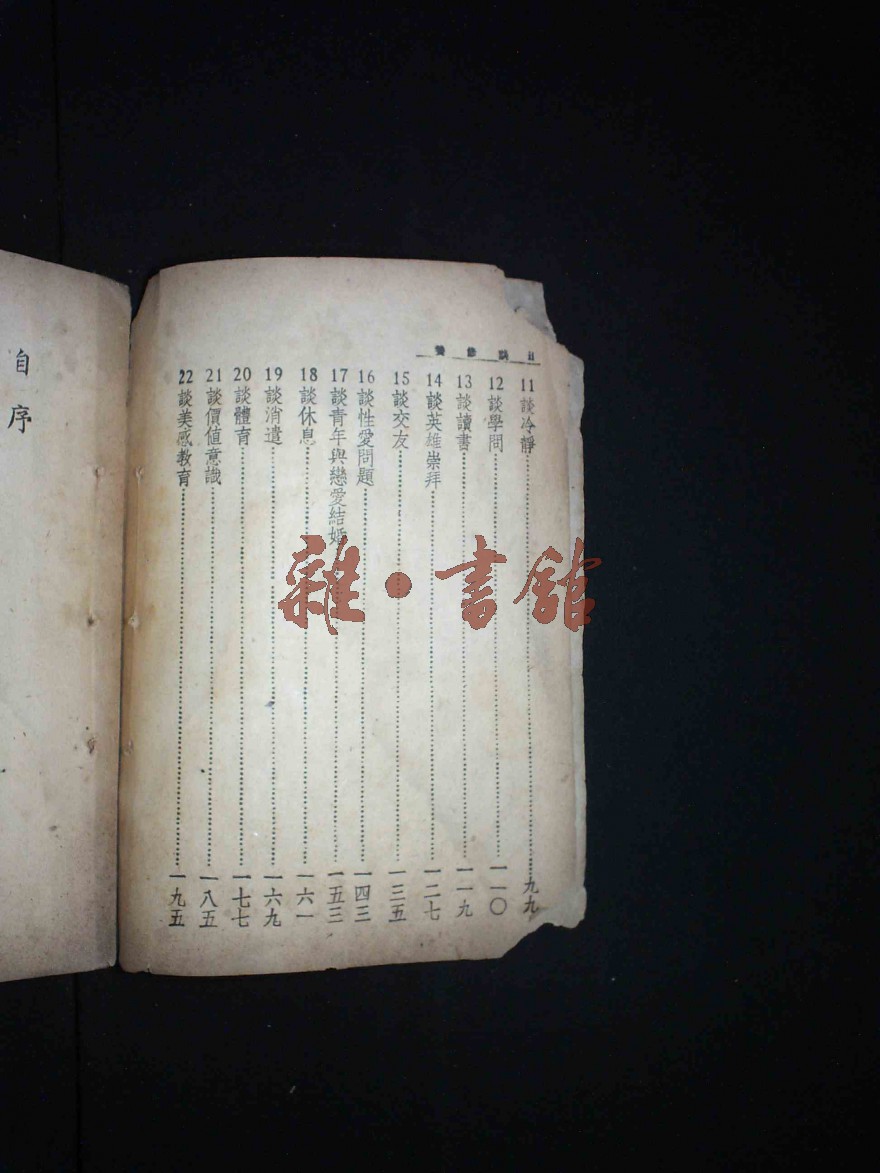 養修談 II
11 談冷靜……九九
12 談學問……一一〇
13 談讀書……一一九
14 談英雄崇拜……一二七
15 談交友……一三五
16 談性愛問題……一四三
17 談青年與戀愛結婚……一五三
18 談休息……一六一
19 談消遣……一六九
20 談體育……一七七
21 談價值意識……一八五
22 談美感教育……一九五
自序
雜·書館